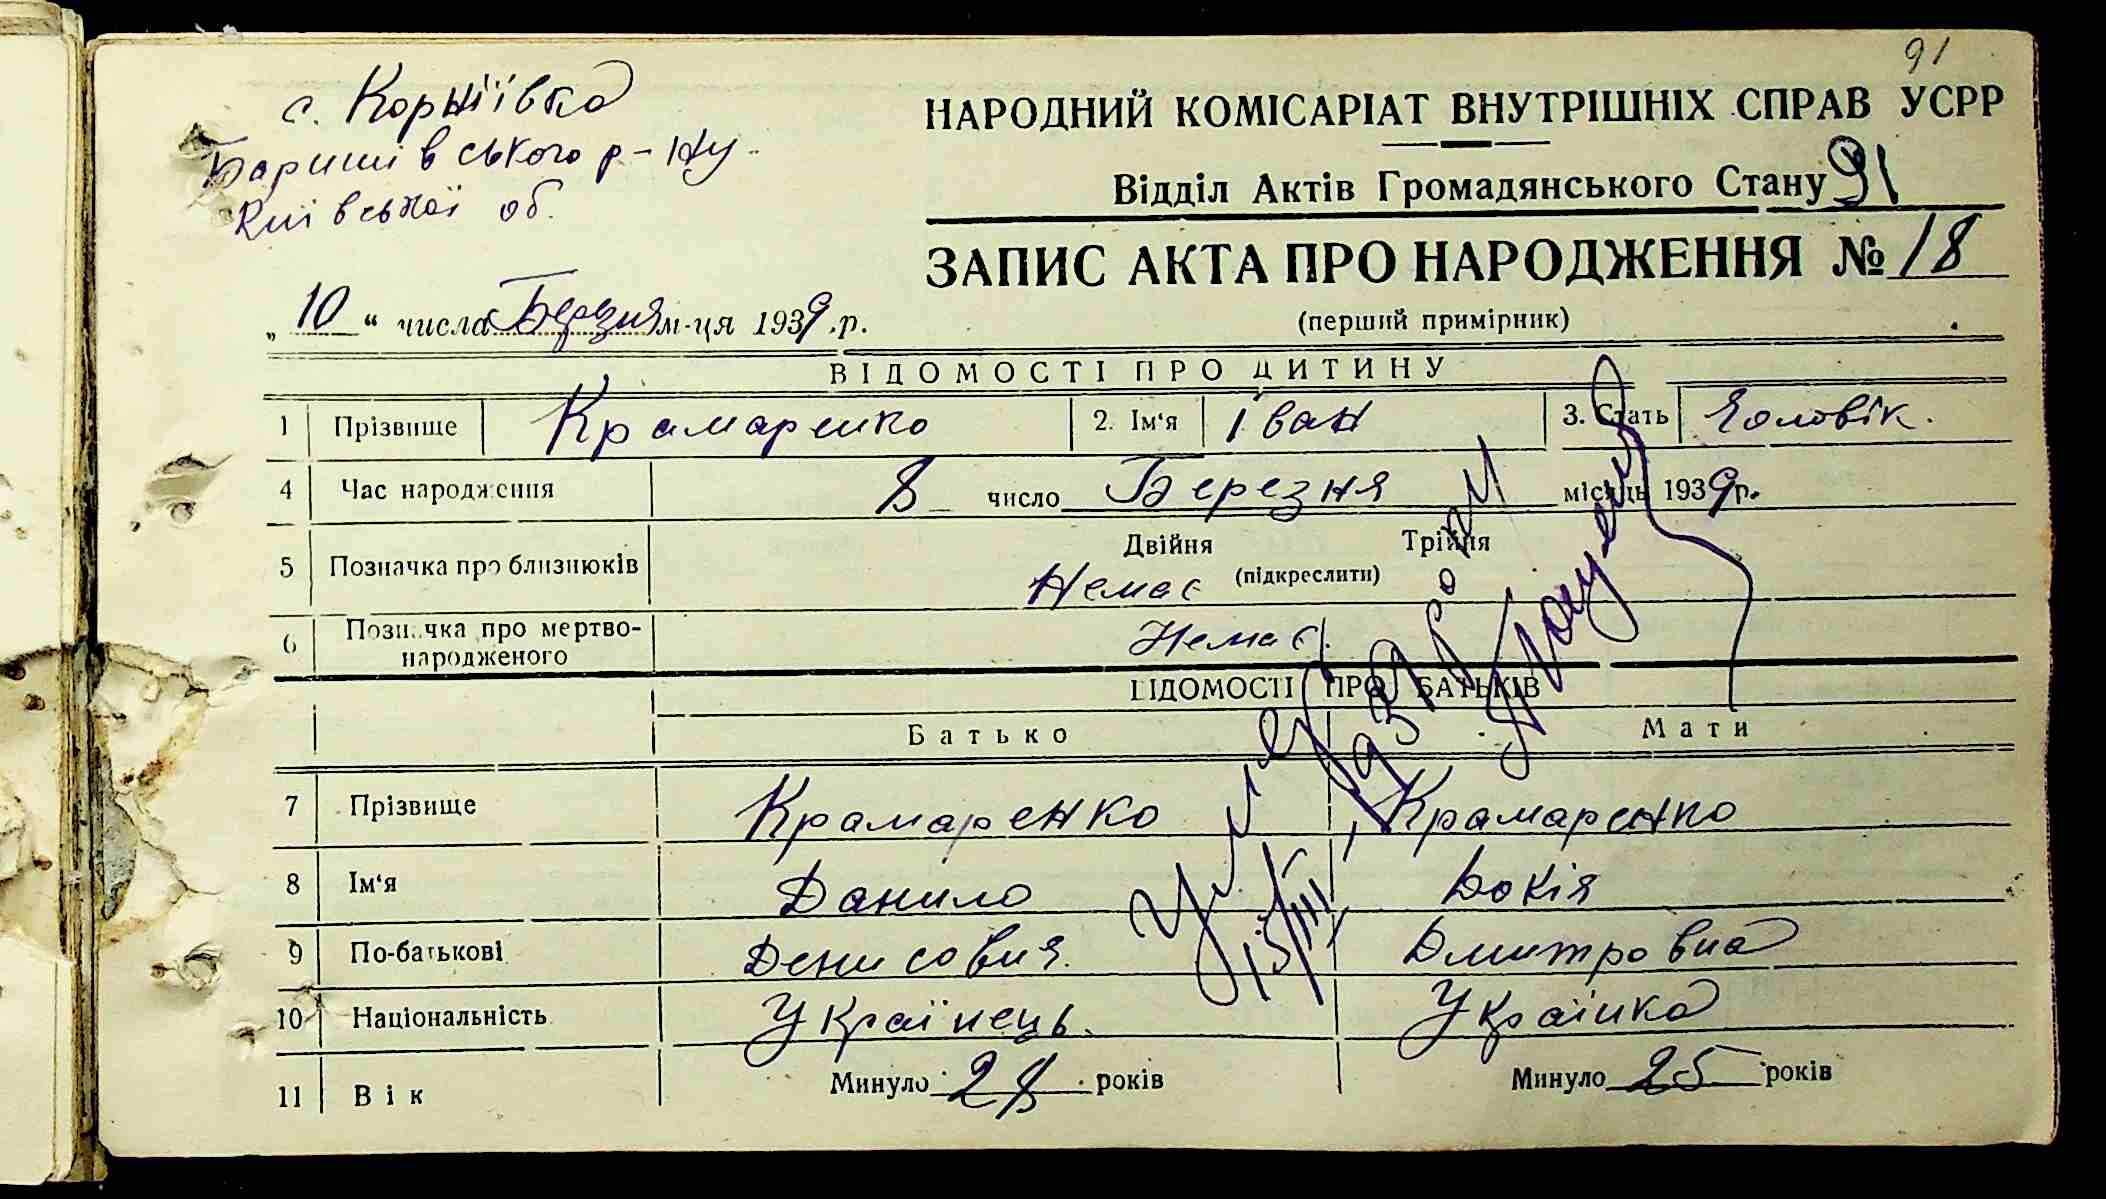 91
с. Корніївка
Баришівського р-ну
Київської об.
НАРОДНИЙ КОМІСАРІАТ ВНУТРІШНІХ СПРАВ УСРР
Відділ Актів Громадянського Стану 91
ЗАПИС АКТА ПРО НАРОДЖЕННЯ № 18
„10“ числа Березня м-ця 1939 .р.
(перший примірник)
ВІДОМОСТІ ПРО ДИТИНУ
1 Прізвище Крамаренко 2. Ім‘я Іван 3. Стать Чоловік.
4 Час народження 8 число Березня місяць 1939 р.
5 Позначка про близнюків Двійня Трійня
Немає (підкреслити)
6 Позначка про мертво-
народженого Немає
ВІДОМОСТІ ПРО БАТЬКІВ
Батько Мати
7 Прізвище Крамаренко Крамаренко
8 Ім‘я Данило Докія
9 По-батькові Денисовия Дмитровна
10 Національність Українець. Українка
11 Вік Минуло 28 років Минуло 25 років
Умер
15/III 1939 р